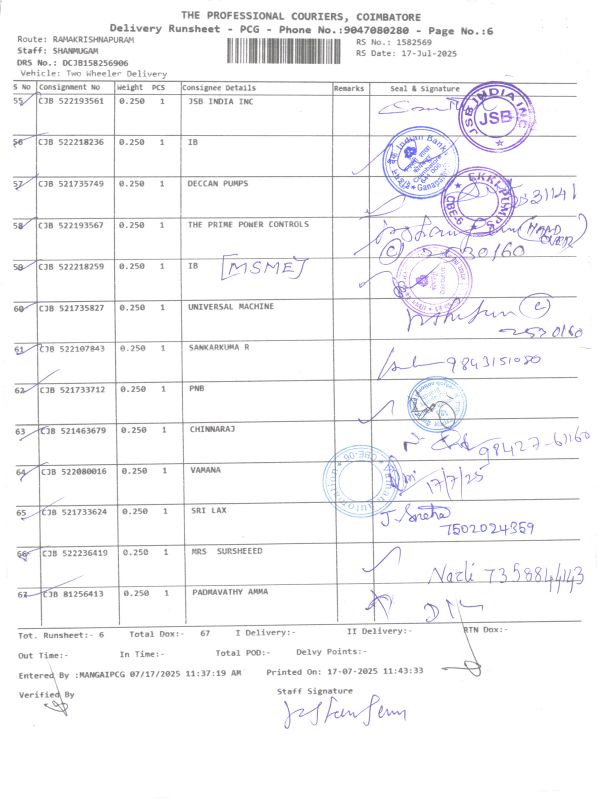 THE PROFESSIONAL COURIERS, COIMBATORE
Delivery Runsheet - PCG - Phone No.:9047080280 - Page No.:6
Route: RAMAKRISHNAPURAM RS No.: 1582569
Staff: SHANMUGAM RS Date: 17-Jul-2025
DRS No.: DCJB158256906
Vehicle: Two Wheeler Delivery
S No Consignment No Weight PCS Consignee Details Remarks Seal & Signature
55 CJB 522193561 0.250 1 JSB INDIA INC
JSB INDIA INC JSB
56 CJB 522218236 0.250 1 IB
Indian Bank Ganapathy
57 CJB 521735749 0.250 1 DECCAN PUMPS
58 CJB 522193567 0.250 1 THE PRIME POWER CONTROLS (HAND OVER)
(C) 2530160
59 CJB 522218259 0.250 1 IB [MSME]
60 CJB 521735827 0.250 1 UNIVERSAL MACHINE (C)
2530160
61 CJB 522107843 0.250 1 SANKARKUMA R 9843151080
62 CJB 521733712 0.250 1 PNB
63 CJB 521463679 0.250 1 CHINNARAJ 98427-61160
64 CJB 522080016 0.250 1 VAMANA 17/7/25
65 CJB 521733624 0.250 1 SRI LAX J. Sneha
7502024359
66 CJB 522236419 0.250 1 MRS SURSHEEED
Nazli 7358844143
67 CJB 81256413 0.250 1 PADMAVATHY AMMA
Tot. Runsheet:- 6 Total Dox:- 67 I Delivery:- II Delivery:- RTN Dox:-
Out Time:- In Time:- Total POD:- Delvy Points:-
Entered By :MANGAIPCG 07/17/2025 11:37:19 AM Printed On: 17-07-2025 11:43:33
Verified By Staff Signature